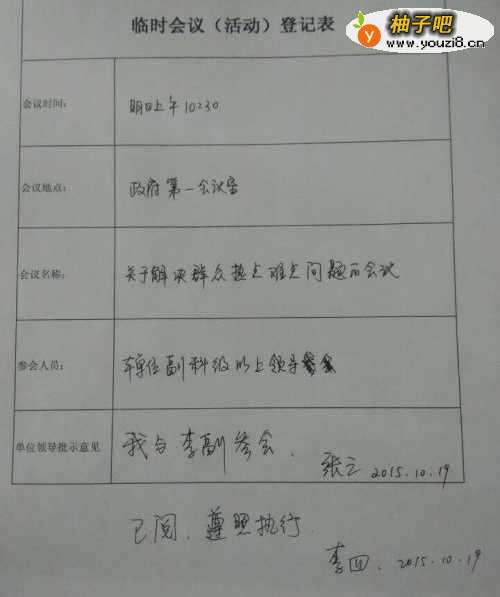 临时会议（活动）登记表
柚子吧
www.youzi8.cn
会议时间：
明日上午10:30
会议地点：
政府第一会议室
会议名称：
关于解决群众热点难点问题的会议
参会人员：
单位副科级以上领导
单位领导批示意见
我与李副参会.
张三 2015.10.19
已阅.遵照执行.
李四. 2015.10.19